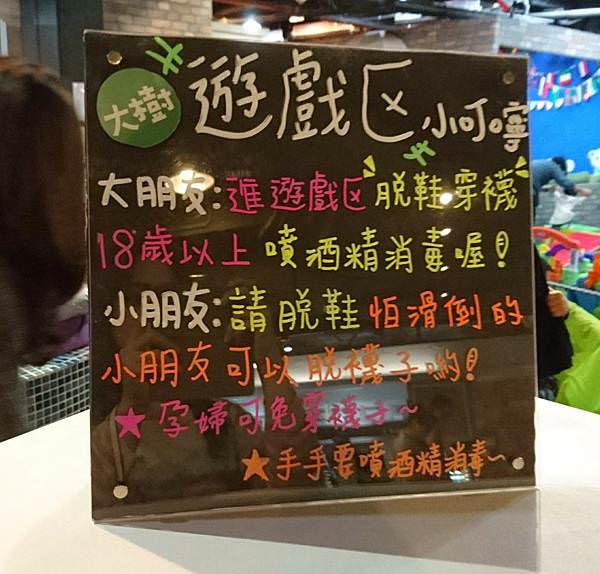 大樹 遊戲区 小叮嚀
大朋友:進遊戲区 脫鞋穿襪
18歲以上 噴酒精消毒喔!
小朋友:請脫鞋 怕滑倒的
小朋友可以脫襪子喲!
★孕婦可免穿襪子~
★手手要噴酒精消毒~